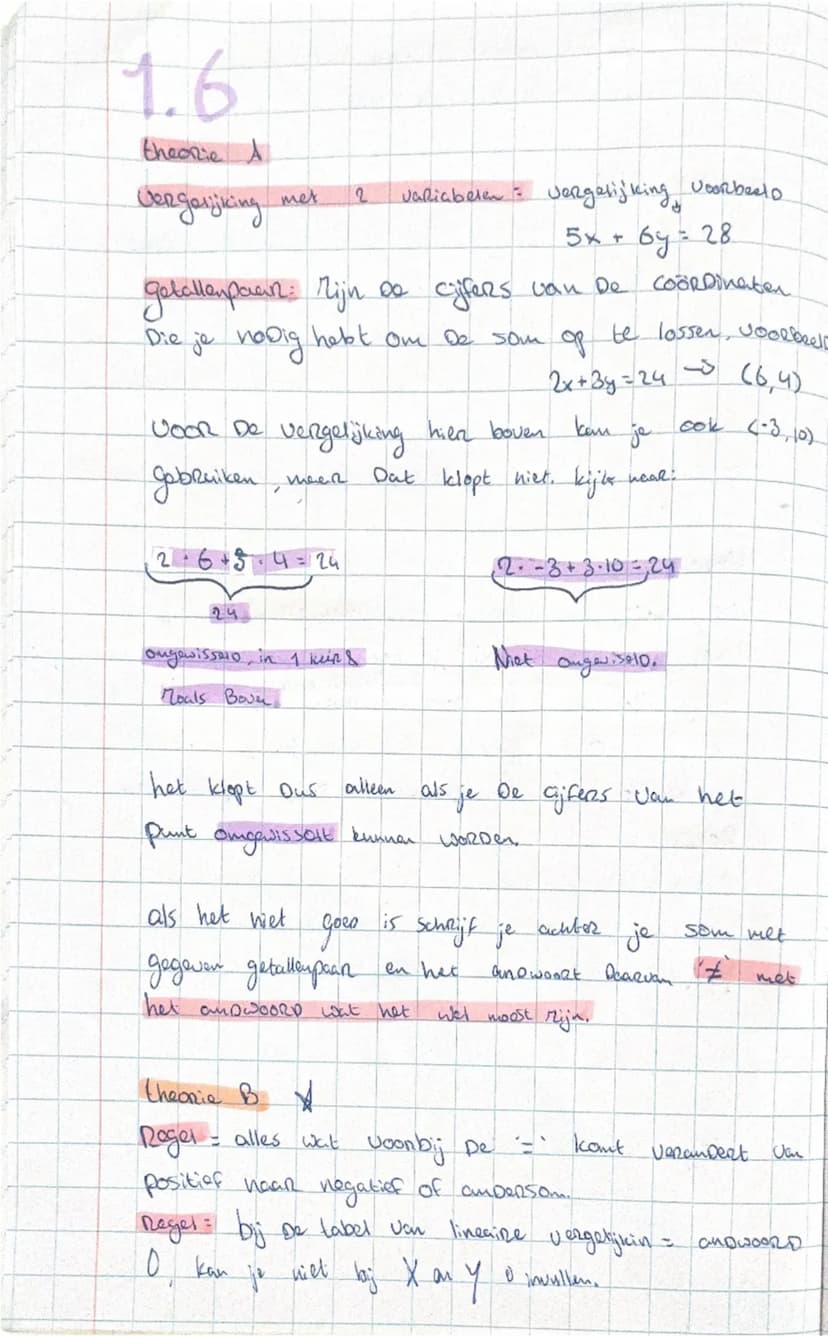 1.6
theorie A
vergelijking met 2 variabelen = vergelijking, voorbeeld
5x + 6y = 28
getallenpaar: zijn de cijfers van de coördinaten
Die je nodig hebt om de som op te lossen, voorbeeld
2x+3y=24 → (6,4)
voor de vergelijking hier boven kan je ook (-3,10)
gebruiken, maar dat klopt niet. kijk naar:
2 · 6 + 3 · 4 = 24
2 · -3 + 3·10 = 24
24
omgewisseld, in 1 keer &
Niet omgewiseld.
zoals Boven
het klopt dus alleen als je de cijfers van het
punt omgewisselt kunnen worden.
als het niet goed is schrijf je achter je som met
gegeven getallenpaar en het andwoort daarvan '≠' met
het andwoord wat het wel moest zijn.
theorie B
Regel = alles wat voorbij de '=' komt verandert van
positief naar negatief of andersom.
Regel = bij de tabel van lineaire vergelijkin = andwoord
0, kan je niet bij X en Y 0 invullen.